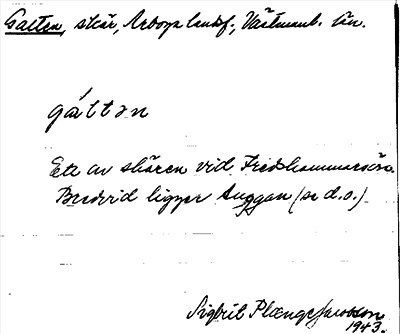 Galten, skär, Arboga landsf., Västmanl. län.
gáltən
Ett av skären vid Fredshammarsöra.
Bredvid ligger Suggan (se d.o.)
Sigbrit Plænge Jacobson
1943.